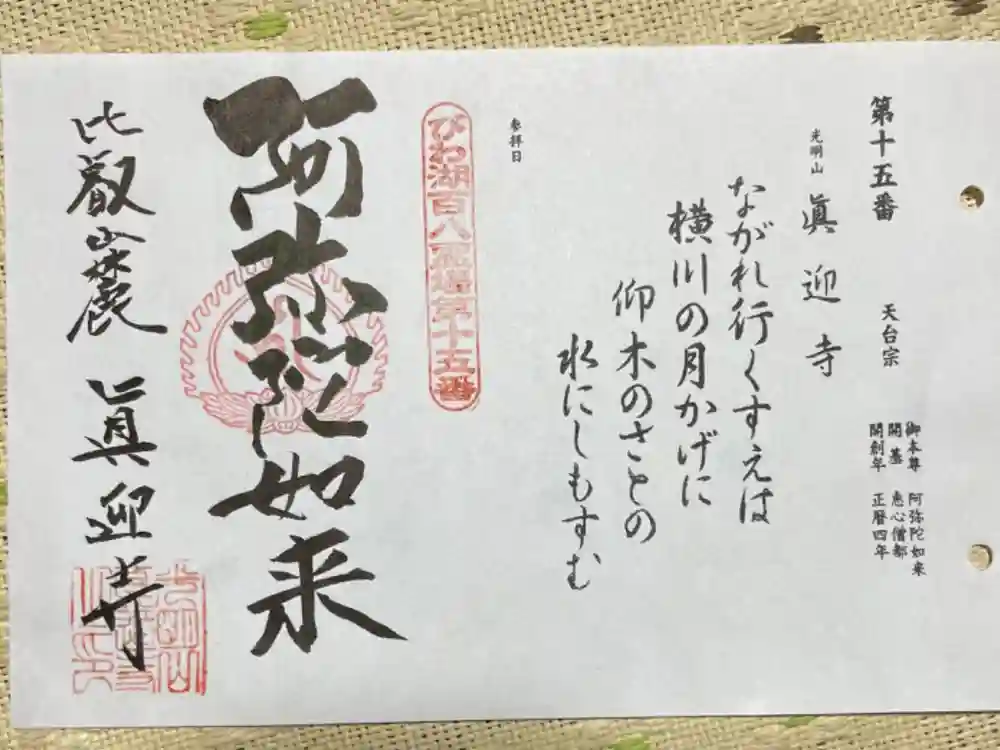 第十五番　天台宗
御本尊　阿弥陀如来
開基　恵心僧都
開創年　正暦四年
光明山　眞迎寺
ながれ行くすえは
横川の月かげに
仰木のさとの
水にしもすむ
参拝日
びわ湖百八霊場第十五番
阿弥陀如来
比叡山麓　眞迎寺